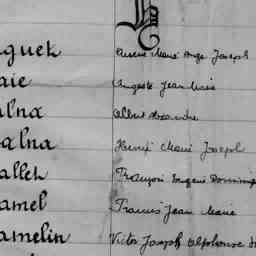 H
guet Marie Ange Joseph
aie Auguste Jean Marie
alna Albert Alexandre
alna Henri Marie Joseph
allet François Eugène Dominiq
amel Francis Jean Marie
amelin Victor Joseph Alphonse